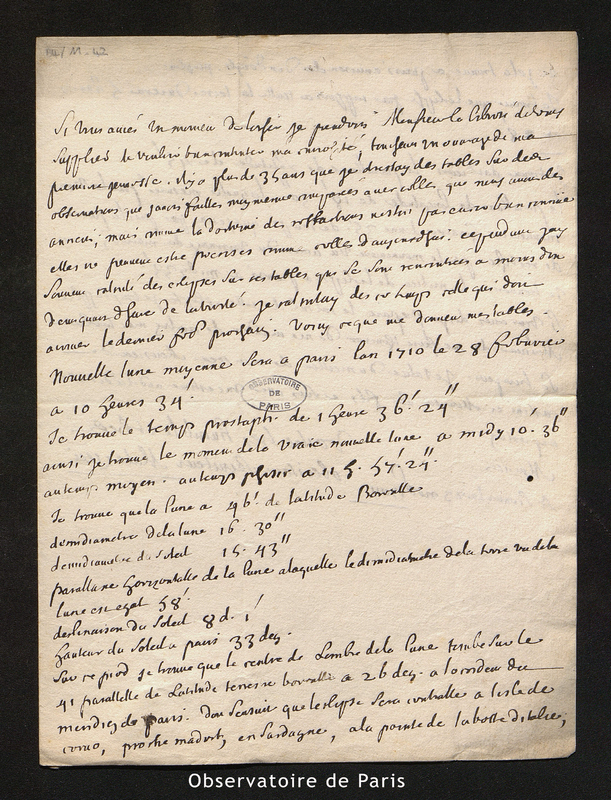 Si vous aviés un moment de loisir je prendrois Monsieur la liberté de vous
supplier de vouloir bien contenter ma curiosité, touchant un ouvrage de ma
premiere jeunesse. Il y a plus de 35 ans que je dressay des tables sur des
observations que j'avois faites moy mesme comparées avec celles que nous avons des
anciens; mais comme la doctrine des refractions n'estoit pas encore bien connue
elles ne peuvent estre precises comme celles d'aujourdhui. cependant j'ay
souvent calculé des eclypses sur ces tables qui se sont rencontrées a moins d'un
demi quart d'heure de la verité. je calculay des ce temps celle qui doit
arriver le dernier prochain. Voicy ce que me donnent mes tables.
Nouvelle lune moyenne sera a paris l'an 1710 le 28 febuvrier
a 10 heures 34'
OBSERVATOIRE
DE
PARIS
Je trouve le temps de 1 heure 36' 24"
ainsi je trouve le moment de la vraie nouvelle lune a midy 10' 36"
au temps moyen. au temps a 11 h. 57' 24".
Je trouve que la lune a 46' de latitude Borealle
demidiametre de la lune 16' 30"
demidiametre du Soleil 15' 43"
parallaxe horizontalle de la lune a laquelle le demidiametre de la terre vu de la
lune est egal 58'
declinaison du Soleil 8 d. 1'
hauteur du Soleil a paris 33 deg.
Sur ce pied je trouve que le centre de l'ombre de la lune tombe sur le
41 parallelle de latitude terrestre borealle a 26 deg. a l'occident du
meridien de paris. D'ou s'ensuit que l'eclypse sera centralle a l'isle de
corvo, proche madrit, en Sardagne, a la pointe de la botte d'italie,
Observatoire de Paris